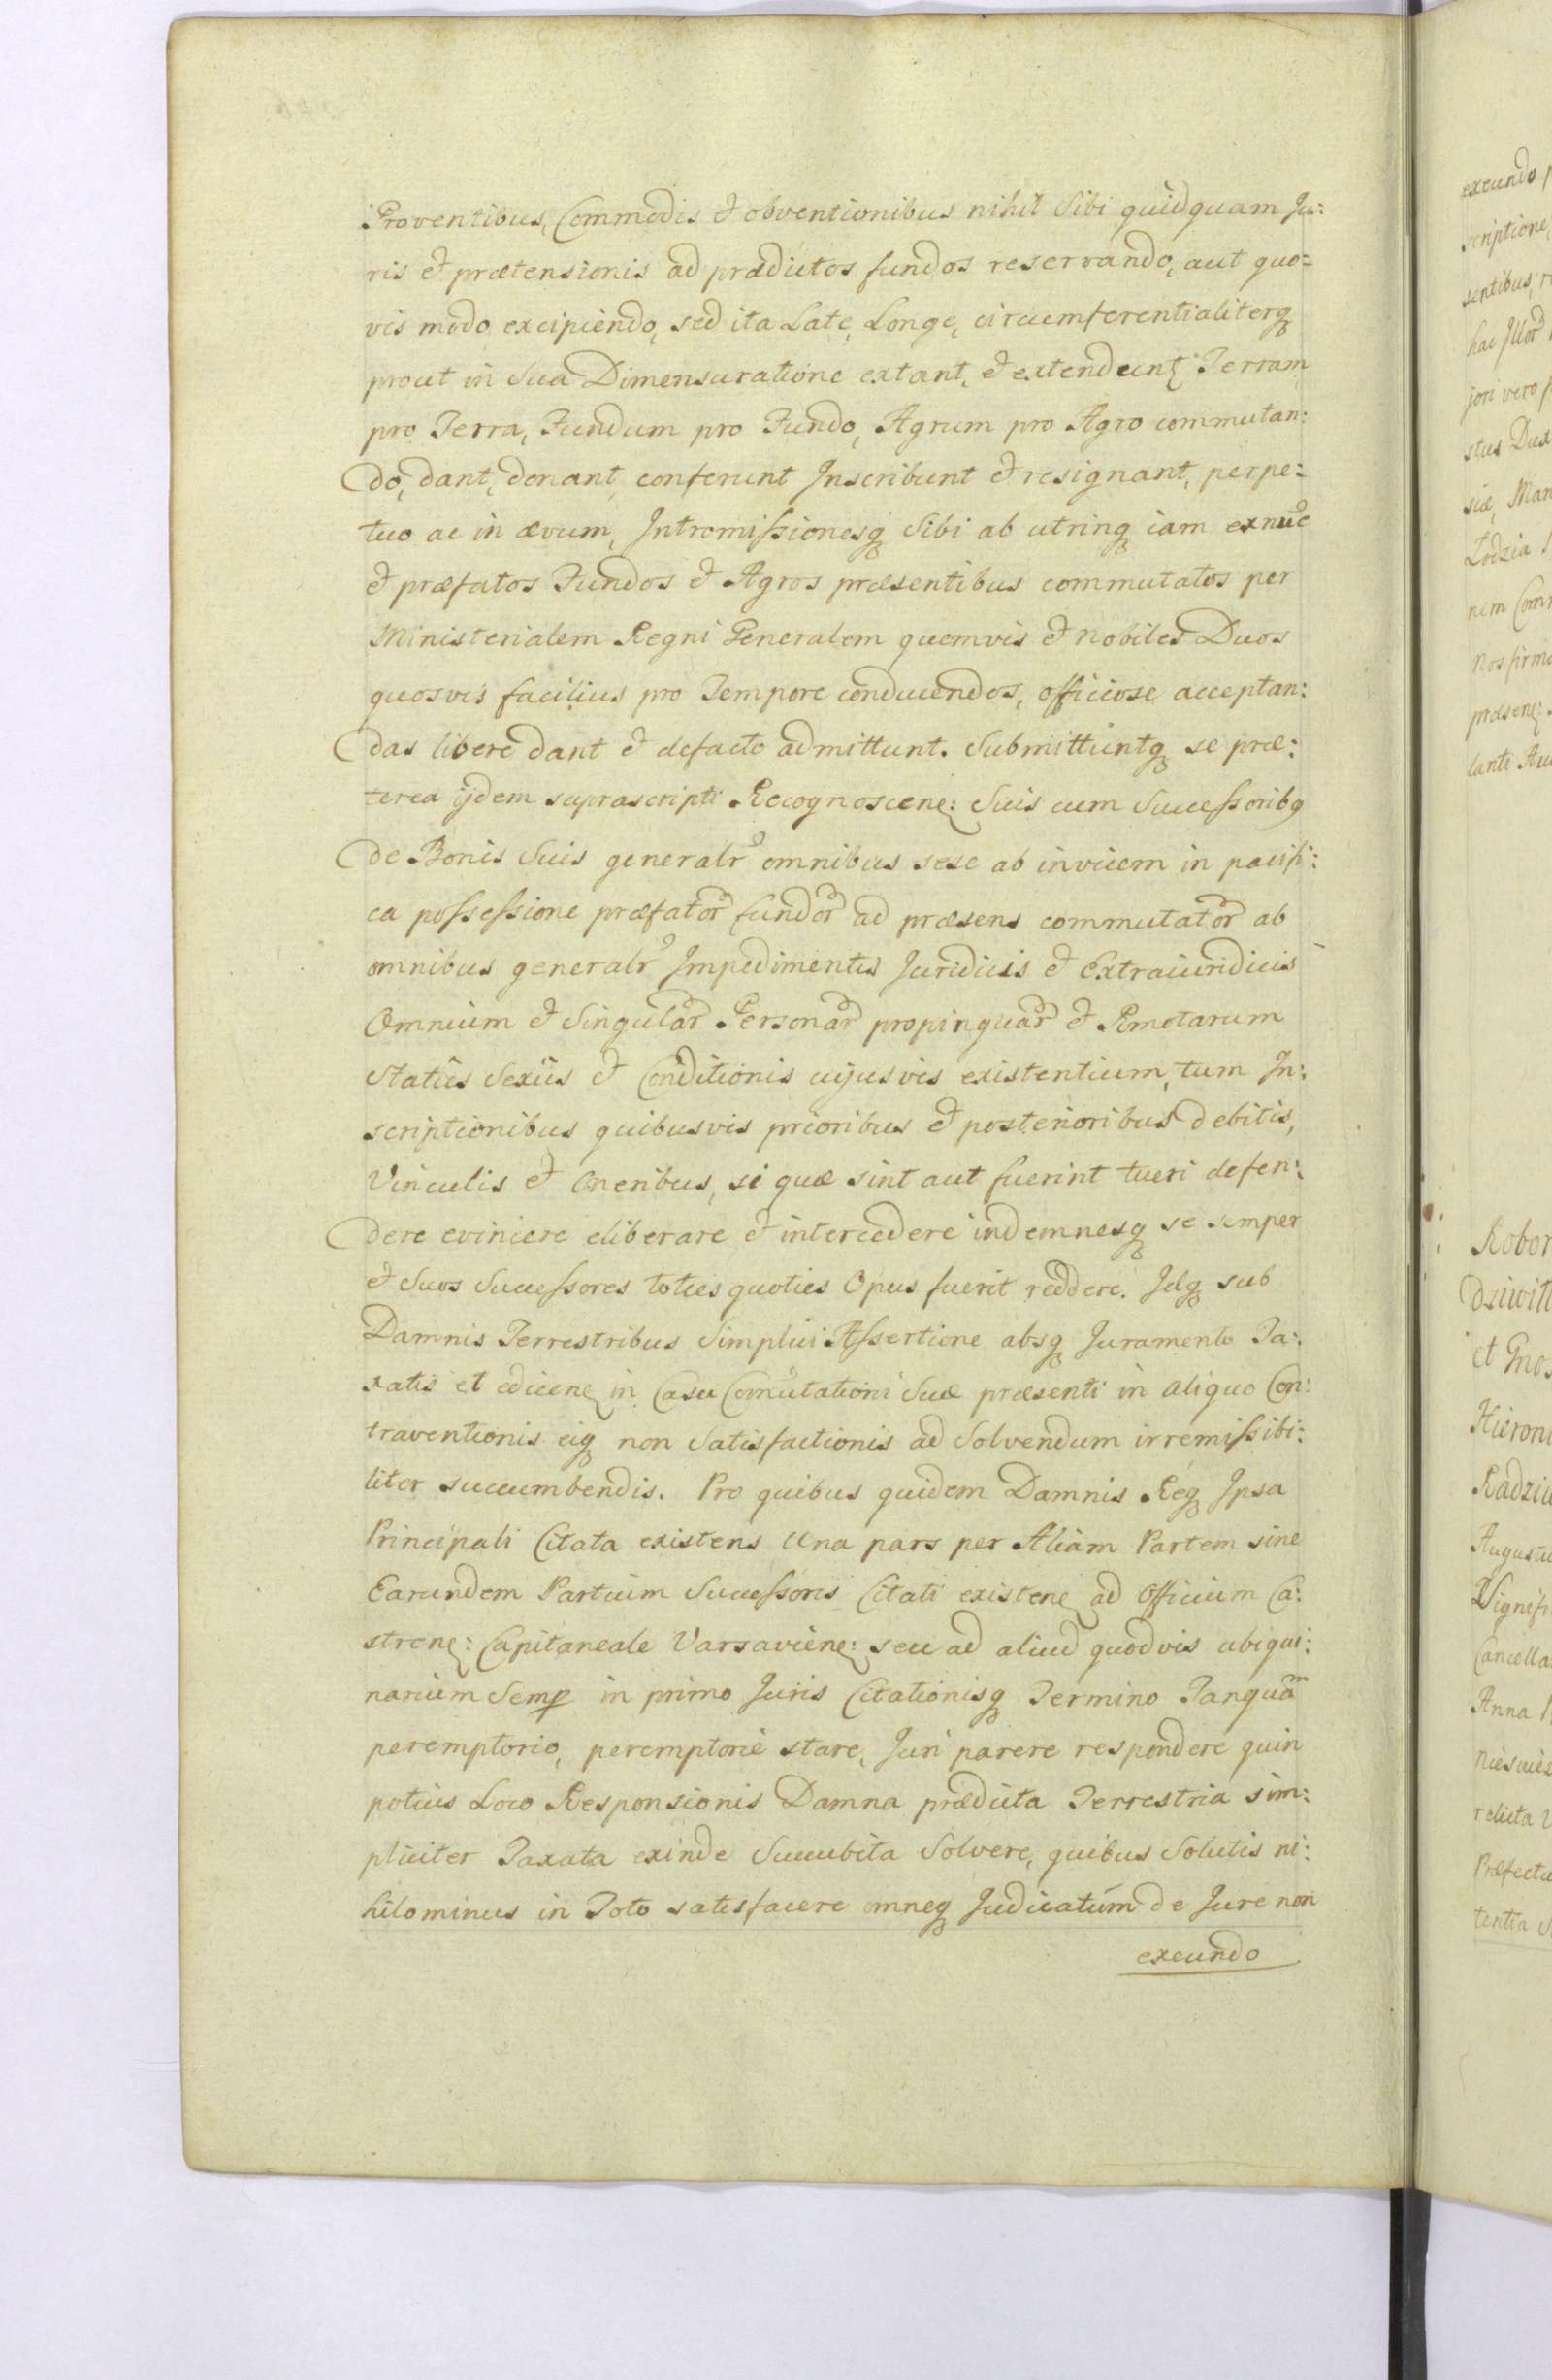 Proventibus, Commodis et obventionibus nihil Sibi quidquam Ju:
ris et prætensionis ad prædictos fundos reservando, aut quo=
vis modo excipiendo, sed ita Late, Longe, circumferentialiterq
prout in Sua Dimensuratione extant, et extendunt Terram
pro Terra, Fundum pro Fundo, Agrum pro Agro commutan:
do, dant, donant, conferunt Inscribunt et resignant, perpe:
tuo ac in ævum, Intromissionesq Sibi ab utrinq iam exnuc
et præfatos Fundos et Agros præsentibus commutatos per
Ministerialem Regni Generalem quemvis et Nobiles Duos
quosvis facilius pro Tempore conducendos, officiose acceptan:
das libere dant et defacto admittunt. Submittuntq se præ:
terea ijdem suprascripti Recognoscen: Suis cum Successoribq
de Bonis Suis generalr omnibus sese ab invicem in pacifi:
ca possessione præfator fundor ad præsens commutator ab
omnibus generalr Impedimentis Juridicis et Extraiuridicis
Omnium et Singular Personar propinquar et Remotarum
Statûs Sexûs et Conditionis cujusvis existentium, tum In:
scriptionibus quibusvis prioribus et posterioribus debitis,
Vinculis et Oneribus, si quæ sint aut fuerint tueri defen:
dere evincere eliberare et intercedere indemnesq se semper
et Suos Successores toties quoties Opus fuerit reddere. Idq sub
Damnis Terrestribus Simplici Assertione absq Juramento Ta:
xatis et edicen in Casu Comutationi Suæ præsenti in aliquo Con:
traventionis eiq non Satisfactionis ad Solvendum irremissibi:
liter succumbendis. Pro quibus quidem Damnis Req Ipsa
Principali Citata existens Una pars per Aliam Partem sine
Earundem Partium Successores Citati existen ad Officium Ca:
stren: Capitaneale Varsavien: seu ad aliud quodvis ubiqui:
narium Semp in primo Juris Citationisq Termino Tanquam
peremptorio, peremptorie stare, Juri parere respondere quin
potius Loco Responsionis Damna prædicta Terrestria sim:
pliciter Taxata exinde Succubita Solvere, quibus Solutis ni:
hilominus in Toto satisfacere omneq Judicatum de Jure non
exeundo
exeundo
scriptione
sentibus,
hac Illor
jori vero
stus Dux
siæ, Mar
Lodzia
nem Com
Nos firm
præsen:
lanti Au
Robor
dziwill
et Gnos
Hieroni
Radziw
Augustu
Signifi
Cancella
Anna
Nieswies
relicta
Præfectu
tentia